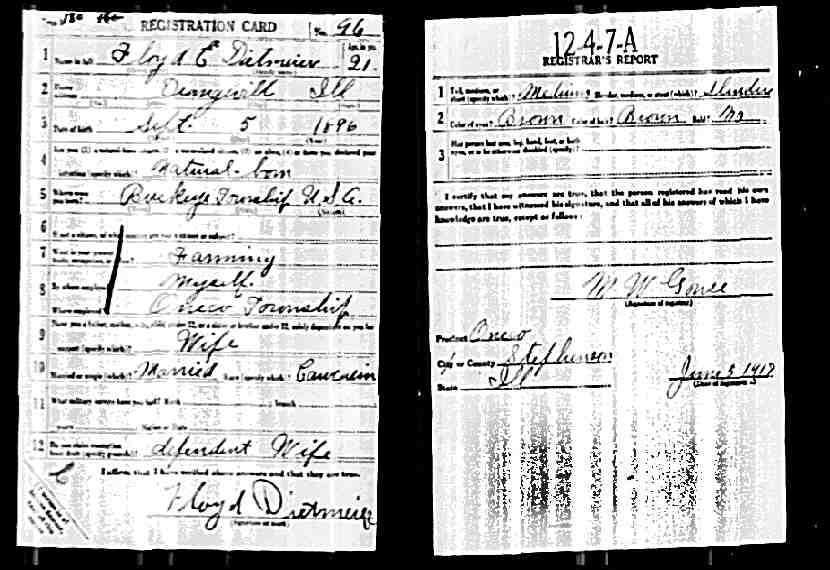 REGISTRATION CARD No. 96
1 Name in full Floyd E Dietmeier Age, in yrs. 21
2 Home address Ill
3 Date of birth Sept. 5 1896
4 Natural-born
5 Where were you born? Buckeye Township U.S.A.
6
7 What is your present trade, occupation, or Farming
8 By whom employed Myself.
Where employed Oneco Township
9 Have you a father, mother, wife, child under 12, or a sister or brother under 12, solely dependent on you for
support (specify which)? Wife
10 Married or single (which)? Married Race (specify which)? Caucasian
11 What military service have you had? Rank branch
years Nation or State
12 Do you claim exemption from draft (specify grounds)? dependent Wife
I affirm that I have verified above answers and that they are true.
Floyd Dietmeier
12-4-7-A
REGISTRAR'S REPORT
1 Tall, medium, or short (specify which)? Medium Slender, medium, or stout (which)? Slender
2 Color of eyes? Brown Color of hair? Brown Bald? No
3 Has person lost arm, leg, hand, foot, or both
eyes, or is he otherwise disabled (specify)?
I certify that my answers are true, that the person registered has read his own
answers, that I have witnessed his signature, and that all of his answers of which I have
knowledge are true, except as follows:
M. W.
(Signature of registrar)
Precinct Oneco
City or County Stephenson
State Ill
June 5 1917
(Date of registration)